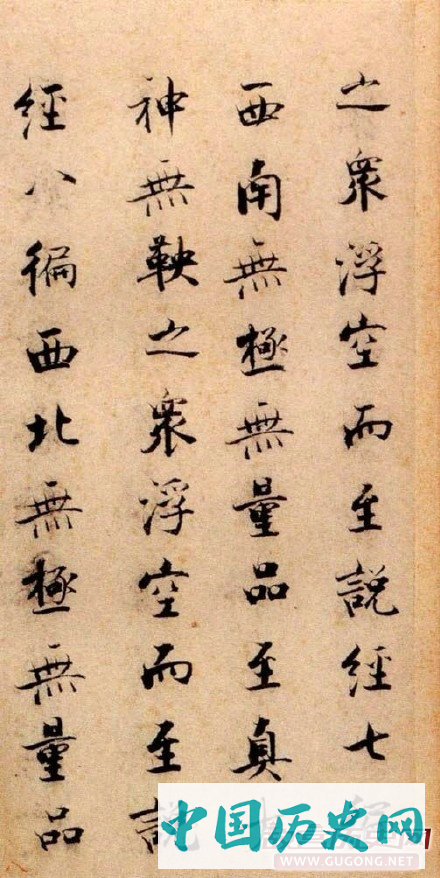 之衆浮空而至説經七
西南無極無量品至真
神無鞅之衆浮空而至説
經八徧西北無極無量品
中国历史网
WWW.GUGONG.NET